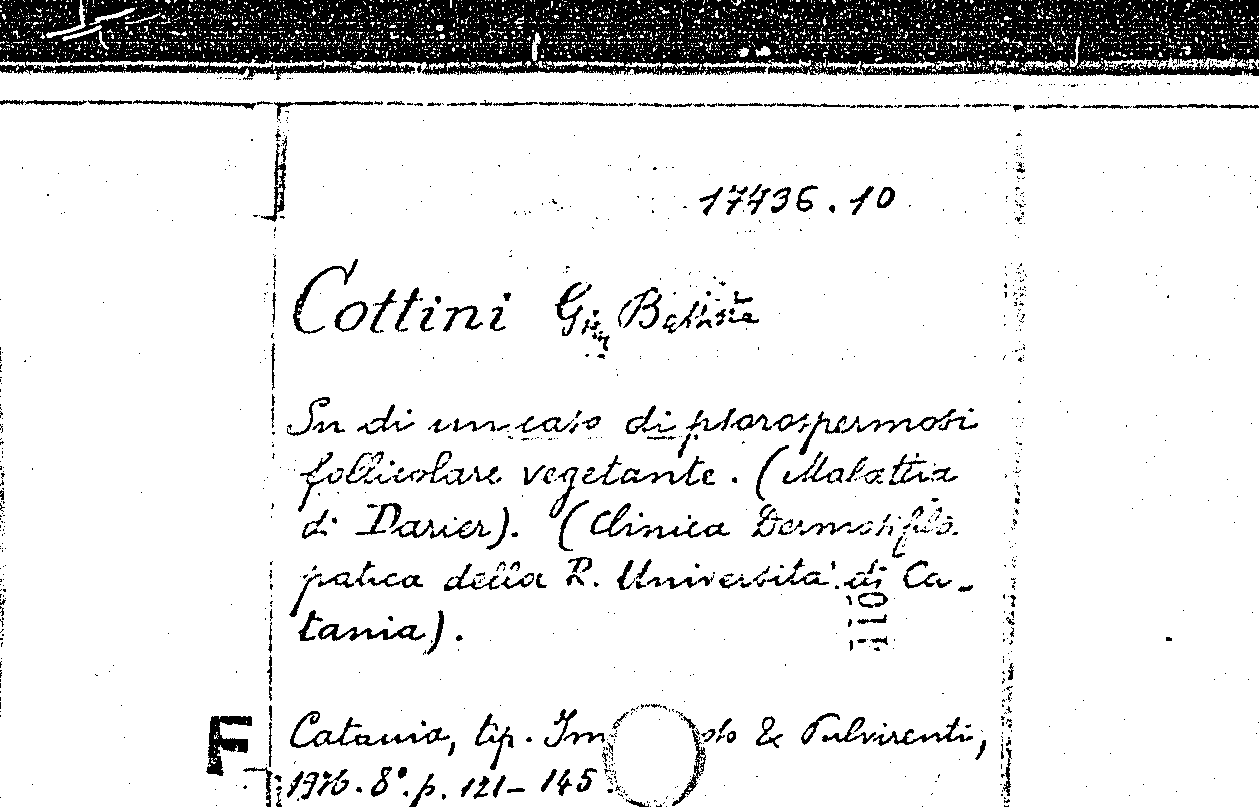 17436.10
Cottini Gian Battista
Su di un caso di psorospermosi
follicolare vegetante. (Malattia
di Darier). (Clinica Dermosifilo
patica della R. Università di Ca-
tania).
110
F Catania, tip. & Pulvirenti,
8°. p. 121-145.